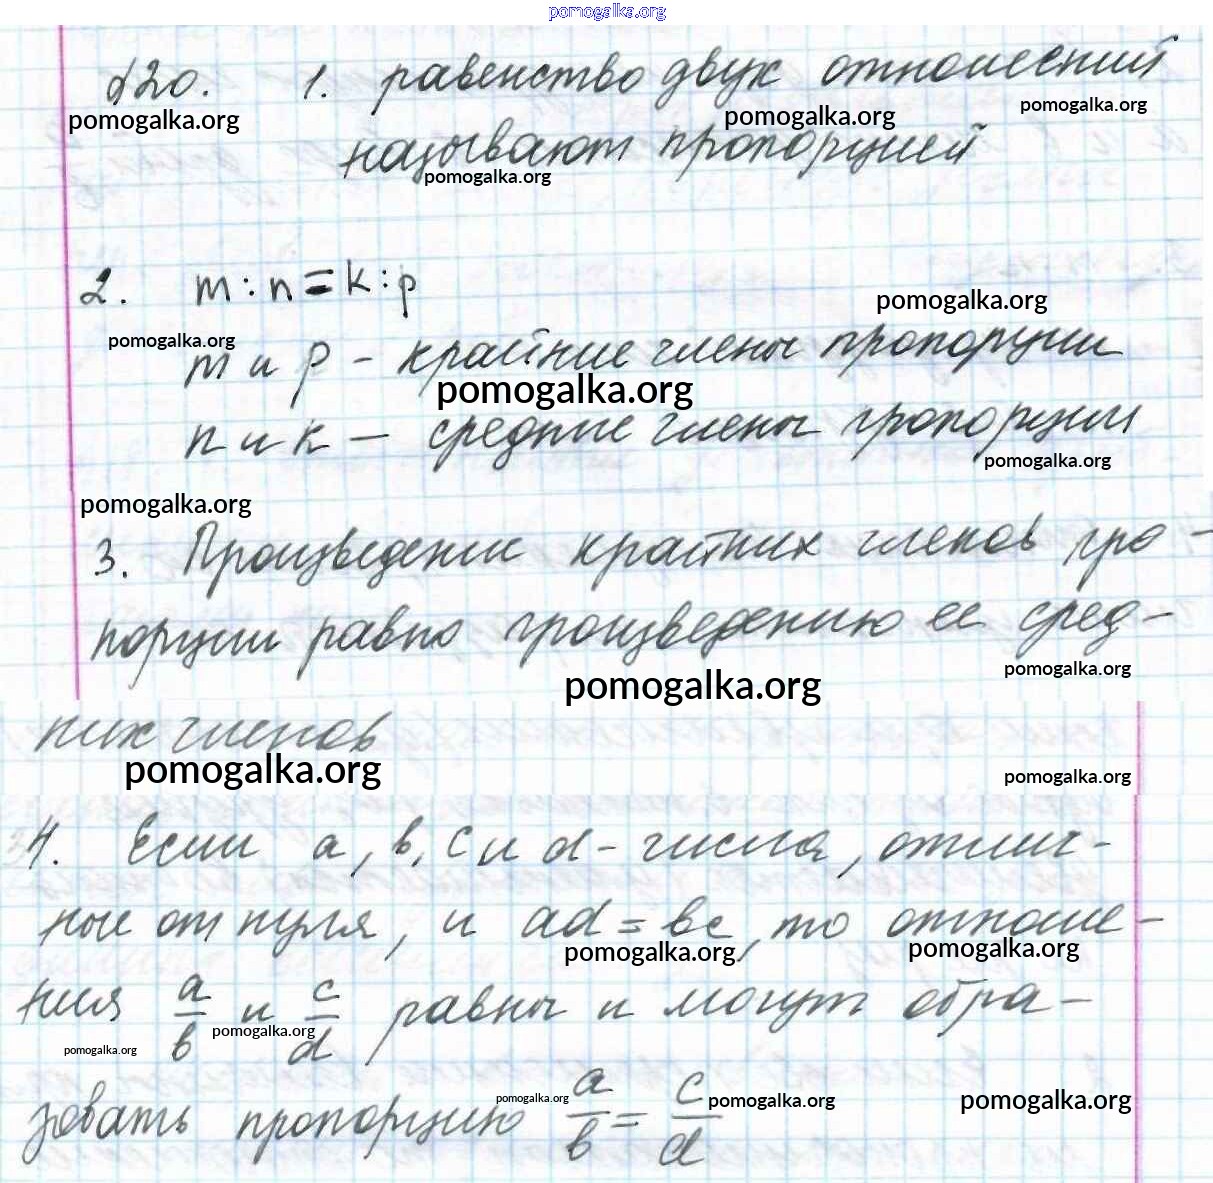 pomogalka.org
§20. 1. равенство двух отношений
pomogalka.org pomogalka.org pomogalka.org
называют пропорцией
pomogalka.org
2. m : n = k : p
pomogalka.org
pomogalka.org
m и p - крайние члены пропорции
pomogalka.org
n и k - средние члены пропорции
pomogalka.org
pomogalka.org
3. Произведение крайних членов про-
порции равно произведению ее сред-
pomogalka.org
pomogalka.org
них членов
pomogalka.org pomogalka.org
4. Если a, b, c и d - числа, отлич-
ные от нуля, и ad = bc, то отноше-
pomogalka.org pomogalka.org
ния a/b и c/d равны и могут обра-
pomogalka.org
pomogalka.org
зовать пропорцию a/b = c/d
pomogalka.org pomogalka.org pomogalka.org